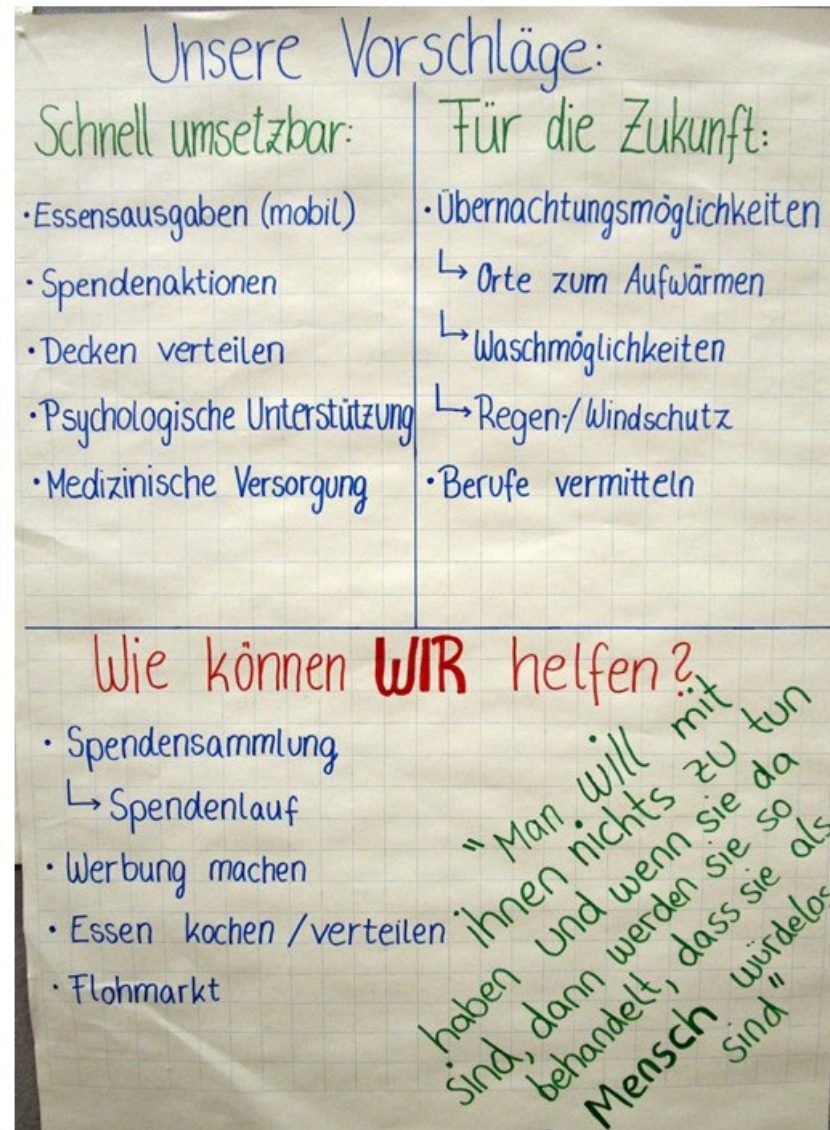 Unsere Vorschläge:
Schnell umsetzbar:
• Essensausgaben (mobil)
• Spendenaktionen
• Decken verteilen
• Psychologische Unterstützung
• Medizinische Versorgung
Für die Zukunft:
• Übernachtungsmöglichkeiten
↳ Orte zum Aufwärmen
↳ Waschmöglichkeiten
↳ Regen-/Windschutz
• Berufe vermitteln
Wie können WIR helfen?
• Spendensammlung
↳ Spendenlauf
• Werbung machen
• Essen kochen / verteilen
• Flohmarkt
"Man will mit
ihnen nichts zu tun
haben und wenn sie da
sind, dann werden sie so
behandelt, dass sie als
Mensch würdelos
sind"